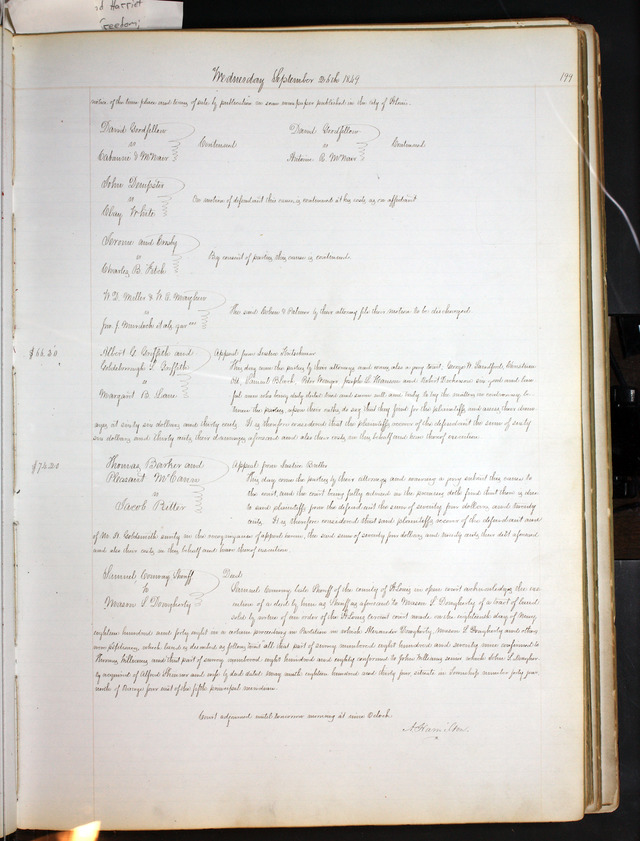 d Harriet
Freedom;
Wednesday September 26th 1849
199
notice of the time place and terms of sale by publication in some newspaper published in the city of St Louis.
David Goodfellow
vs
Cabanne & McNair
Continued
David Goodfellow
vs
Antoine R. McNair
Continued
John Dempster
vs
Clay White
On motion of defendant this cause is continued at his costs as on affidavit
Jerome and Crosby
vs
Charles B. Fitch
By consent of parties this cause is continued.
W. D. Miller & W. C. Mayhew
vs
Jno J. Murdoch et als, gar
The said & Palmer by their attorney file their motion to be discharged
$66.30
Albert G. Griffith and
Goldsborough S. Griffith
vs
Margaret B. Lane
Appeal from Justice
This day come the parties by their attorneys and come also a jury to wit, George W. Sandford, Christian
Samuel Black, Peter Joseph L. and Robert six good and law
ful men who being duly elected tried and sworn well and truly to try the matters in controversy be
tween the parties, upon their oaths do say that they find for the plaintiffs and assess their dama
ges at sixty six dollars and thirty cents. It is therefore considered that the plaintiffs recover of the defendant the sum of sixty
six dollars and thirty cents, their damages aforesaid and also their costs in this behalf and have thereof execution.
$74.20
Thomas Barker and
Pleasant McCann
vs
Jacob Ritter
Appeal from Justice Butler
This day come the parties by their attorneys and waiving a jury submit this cause to
the court, and the court being fully advised in the premises doth find that there is due
to said plaintiffs from the defendant the sum of seventy four dollars and twenty
cents. It is therefore considered that said plaintiffs recover of the defendant and
of M. D. Goldsmith surety in the recognizance of appeal herein, the said sum of seventy four dollars and twenty cents, their debt aforesaid
and also their costs in this behalf and have thereof execution.
Samuel Conway Sheriff
to
Mason S Dougherty
Deed
Samuel Conway late Sheriff of the county of St Louis in open court acknowledges the exe
cution of a deed by him as Sheriff as aforesaid to Mason S Dougherty of a tract of land
sold by virtue of an order of the St Louis circuit court made on the eighteenth day of May,
eighteen hundred and forty eight on a certain proceeding in Partition in which Alexander Dougherty, Mason S Dougherty and others
were petitioners, which land is described as follows, to wit, all that part of survey numbered eight hundred and seventy nine confirmed to
and that part of survey numbered eight hundred and eighty confirmed to John Williams senior which John L. Dougher
ty acquired of Alfred and wife by deed dated May ninth eighteen hundred and thirty five, situate in Township number forty four
north of Range four east of the fifth principal meridian.
Court adjourned until tomorrow morning at nine Oclock.
A Hamilton